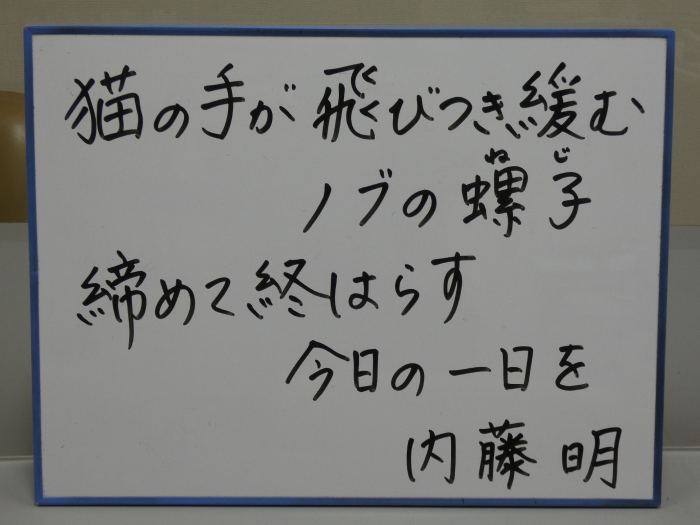 猫の手が飛びつき緩む
ノブの螺子
締めて終はらす
今日の一日を
内藤明